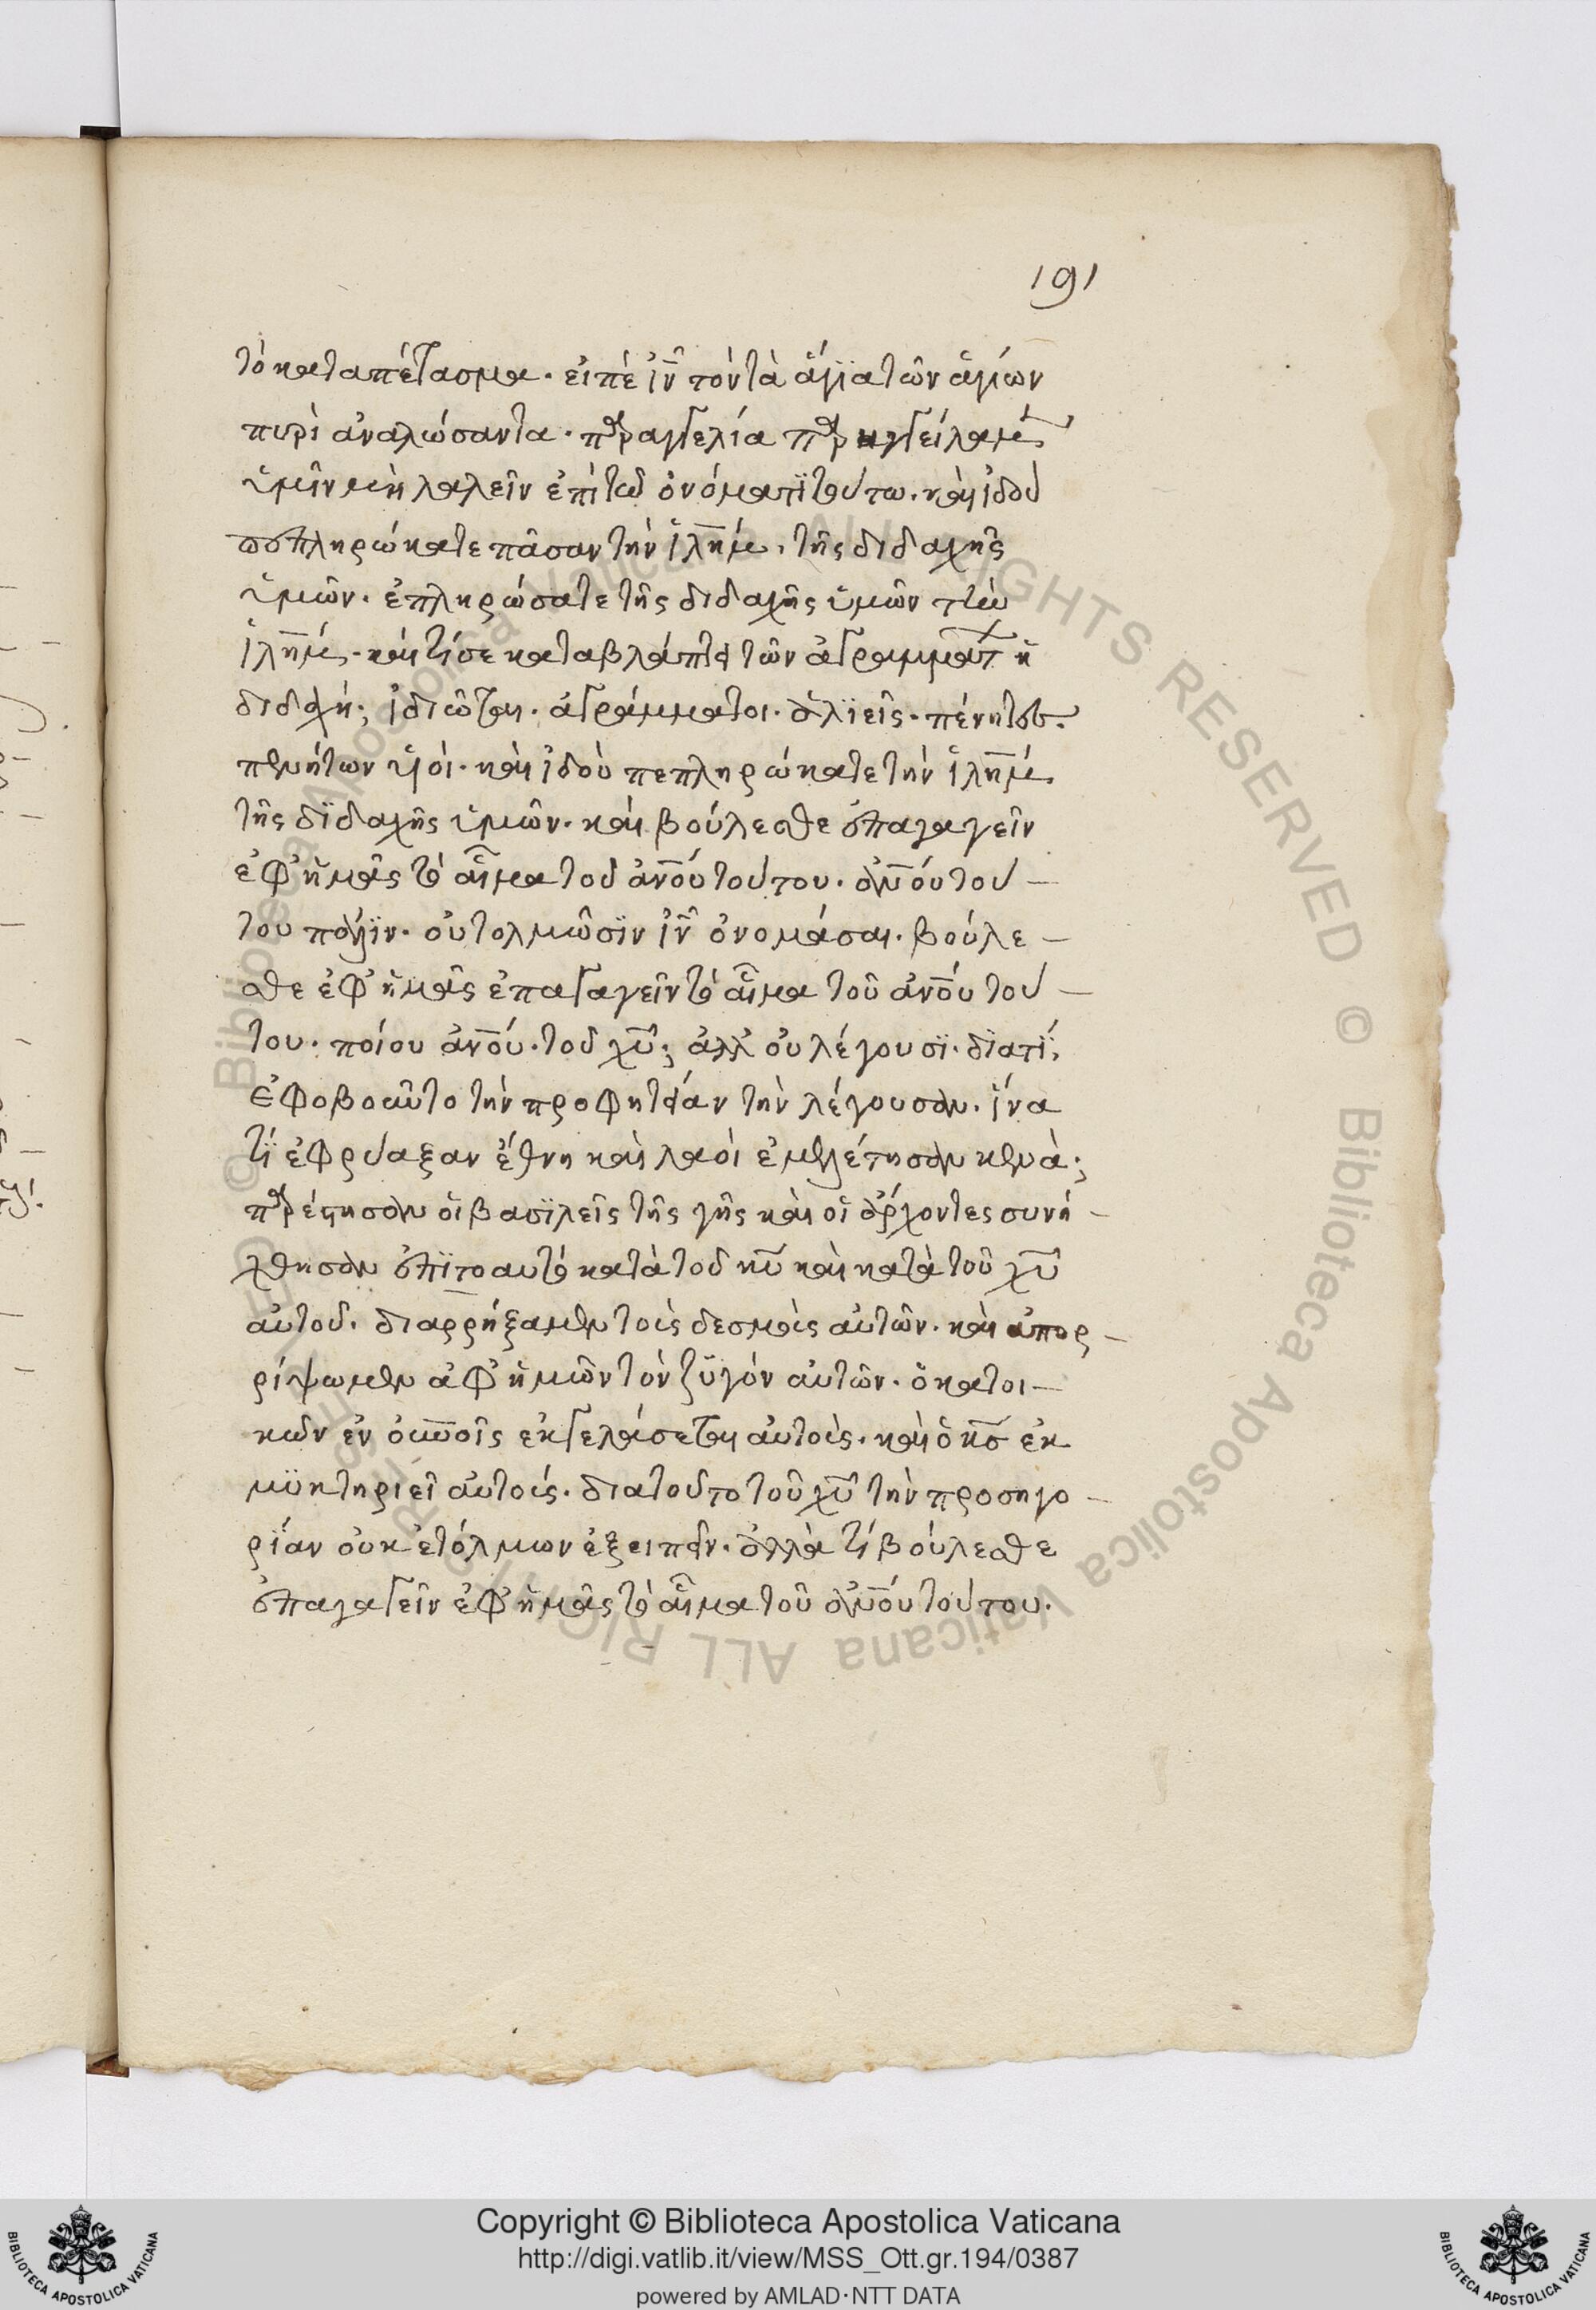 191
τὸ καταπέτασμα. εἰπὲ ἰν̄ τὸν τὰ ἅγϊα τῶν ἁγίων
πυρὶ ἀναλώσαντα. παραγγελία παρηγγείλαμεν
ὑμῖν μὴ λαλεῖν ἐπὶ τῶ ὀνόματϊ τούτω. καὶ ἰδοὺ
πεπληρώκατε πᾶσαν τὴν ἱλη̄μ. τῆς διδαχῆς
ὑμῶν. ἐπληρώσατε τῆς διδαχῆς ὑμῶν τὴν
ἱλη̄μ. καὶ τί σε καταβλάπτει τῶν ἀγραμμάτ ἡ
διδαχή; ἰδιῶται. ἀγράμματοι. ἁλϊεῖς. πένητες.
πενήτων υἱοί. καὶ ἰδοὺ πεπληρώκατε τὴν ἱλη̄μ
τῆς δϊδαχῆς ὑμῶν. καὶ βούλεσθε ἐπαγαγεῖν
ἐφ' ἡμᾶς τὸ αἷμα τοῦ ἀνο̄ύ τούτου. ἀνο̄ύ τού—
του πάλϊν. οὐ τολμῶσϊν ἰν̄ ὀνομάσαι. βούλε—
σθε ἐφ' ἡμᾶς ἐπαγαγεῖν τὸ αἷμα τοῦ ἀνο̄ύ τού—
του. ποίου ἀνο̄ύ. τοῦ χῡ; ἀλλ' οὐ λέγουσϊ. δϊατϊ;
ἐφοβοῦντο τὴν προφητείαν τὴν λέγουσαν. ἵνα
τϊ ἐφρύαξαν ἔθνη καὶ λαοὶ ἐμελέτησαν κενά;
παρέστησαν οἱ βασϊλεῖς τῆς γῆς καὶ οἱ ἄρχοντες συνή—
χθησαν ἐπϊτοαυτὸ κατὰ τοῦ κῡ καὶ κατὰ τοῦ χῡ
αὐτοῦ. διαρρήξωμεν τοὺς δεσμοὺς αὐτῶν. καὶ ἀπορ—
ρίψωμεν ἀφ' ἡμῶν τὸν ζϋγὸν αὐτῶν. ὁ κατοι—
κῶν ἐν οὐνοῖς ἐκγελάσεται αὐτοὺς. καὶ ὁ κς̄ ἐκ
μϋκτηριεῖ αὐτούς. διατοῦτο τοῦ χῡ τὴν προσηγο—
ρίαν οὐκ ἐτόλμων ἐξειπεῖν. ἀλλὰ τί βούλεσθε
ἐπαγαγεῖν ἐφ' ἡμᾶς τὸ αἷμα τοῦ ἀνο̄ύ τούτου.
© Biblioteca Apostolica Vaticana ALL RIGHTS RESERVED
Copyright © Biblioteca Apostolica Vaticana
http://digi.vatlib.it/view/MSS_Ott.gr.194/0387
powered by AMLAD·NTT DATA
BIBLIOTECA APOSTOLICA VATICANA
BIBLIOTECA APOSTOLICA VATICANA